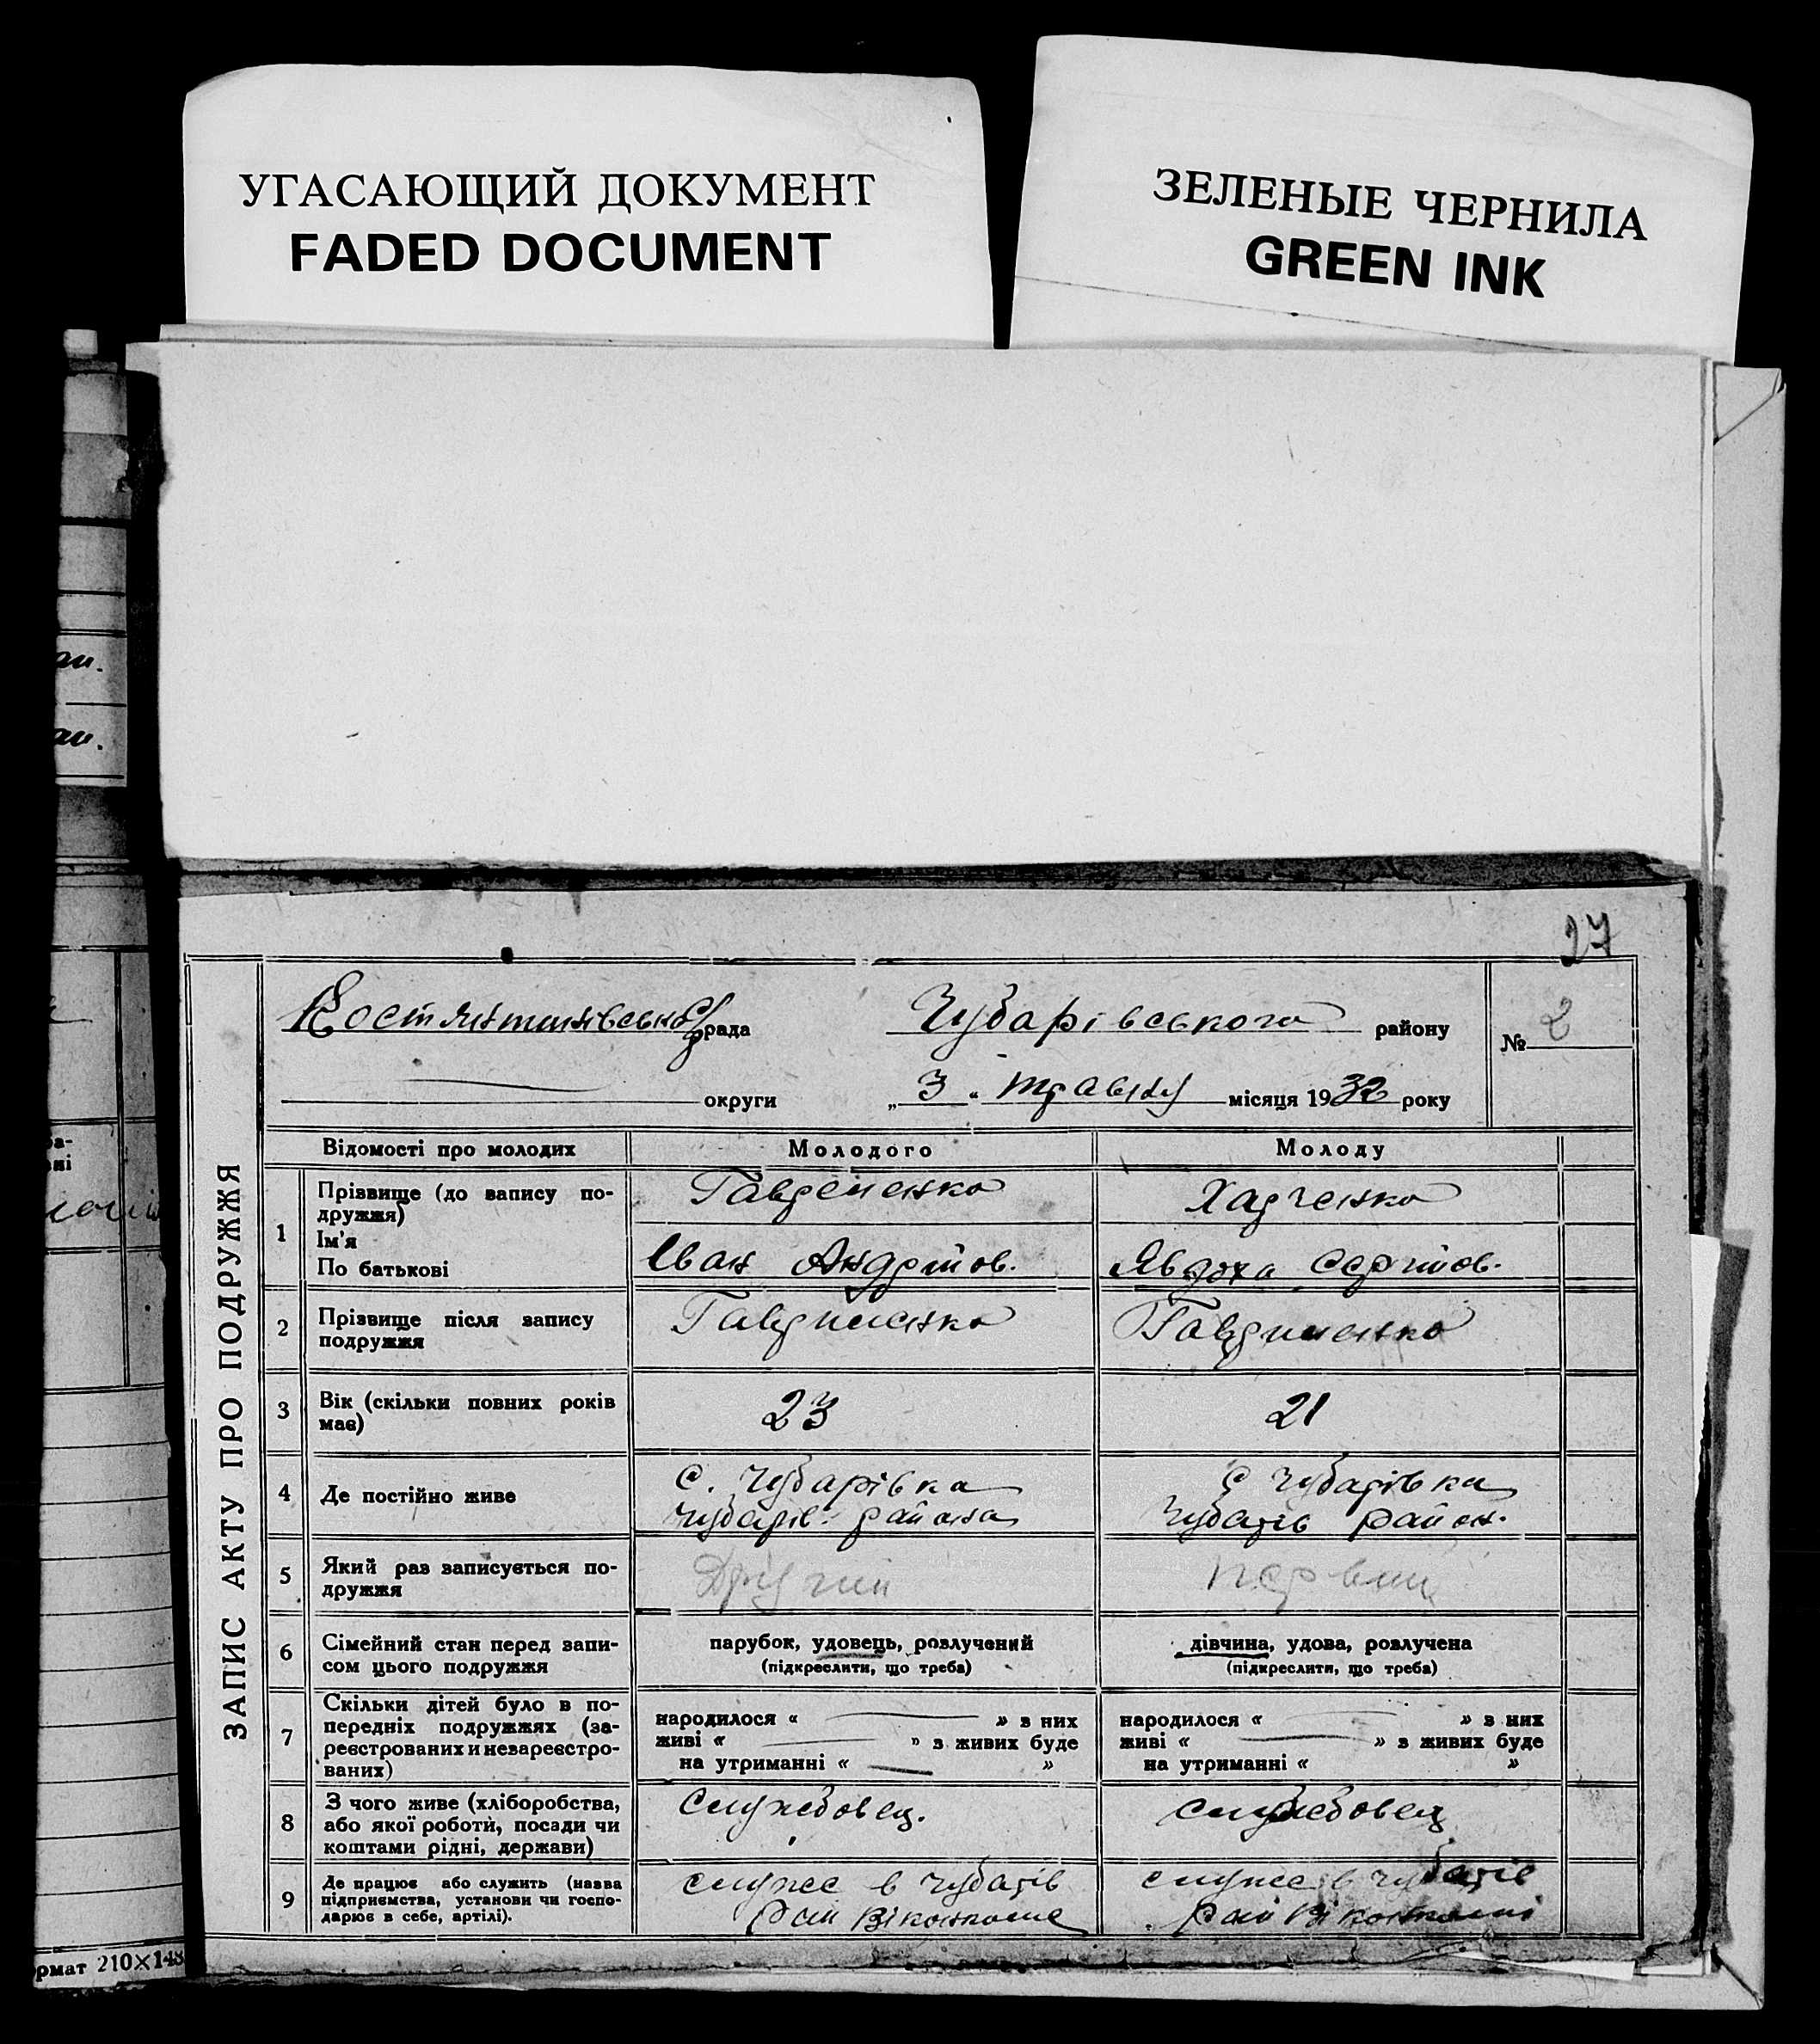 УГАСАЮЩИЙ ДОКУМЕНТ
FADED DOCUMENT
ЗЕЛЕНЫЕ ЧЕРНИЛА
GREEN INK
27
рада Чубарівського району № 2
округи „ 3 “ травня місяця 1932 року
ЗАПИС АКТУ ПРО ПОДРУЖЖЯ
Відомості про молодих Молодого Молоду
1 Прізвище (до запису по-
дружжя)
Ім'я
По батькові
Харченко
Іван Андрійов.
Явдоха Сергійов.
2 Прізвище після запису
подружжя
3 Вік (скільки повних років
має) 23 21
4 Де постійно живе
с. Чубарівка
Чубарів. района
с Чубарівка
Чубарів район.
5 Який раз записується по-
дружжя
Другий первий
6 Сімейний стан перед запи-
сом цього подружжя
парубок, удовець, розлучений
(підкреслити, що треба)
дівчина, удова, розлучена
(підкреслити, що треба)
7 Скільки дітей було в по-
передніх подружжях (за-
реєстрованих и незареєстро-
ваних)
народилося « » з них
живі « » з живих буде
на утриманні « »
народилося « » з них
живі « » з живих буде
на утриманні « »
8 З чого живе (хліборобства,
або якої роботи, посади чи
коштами рідні, держави)
Службовец.
службовец
9 Де працює або служить (назва
підприємства, установи чи госпо-
дарює в себе, артілі).
служе в Чубарів
Рай Віконкоме
служе в Чубарів
Рай Віконкомі
ан.
ан.
рмат 210×148